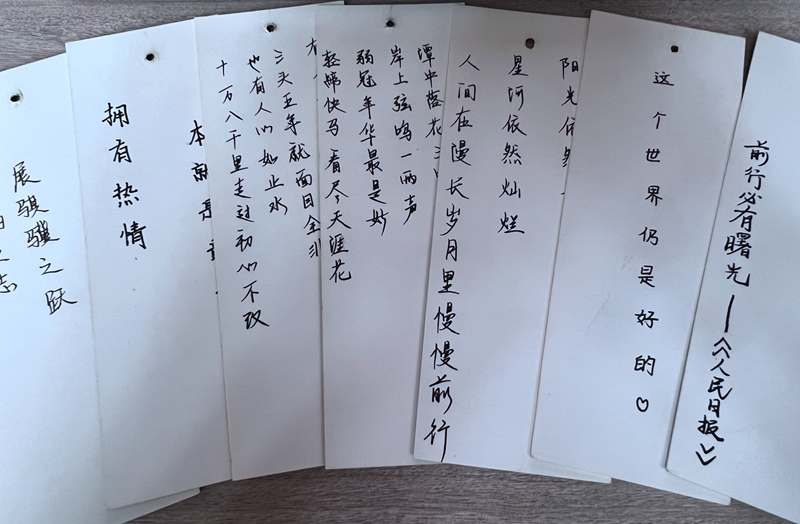 前行必有曙光——《人民日报》
这个世界仍是好的♡
阳光依
星河依然灿烂
人间在漫长岁月里慢慢前行
潭中落花三
岸上弦鸣一两声
弱冠年华最是妙
轻蹄快马看尽天涯花
三头五年就面目全非
也有人心如止水
十万八千里走过初心不改
本就是
拥有热情
展骐骥之跃
之志